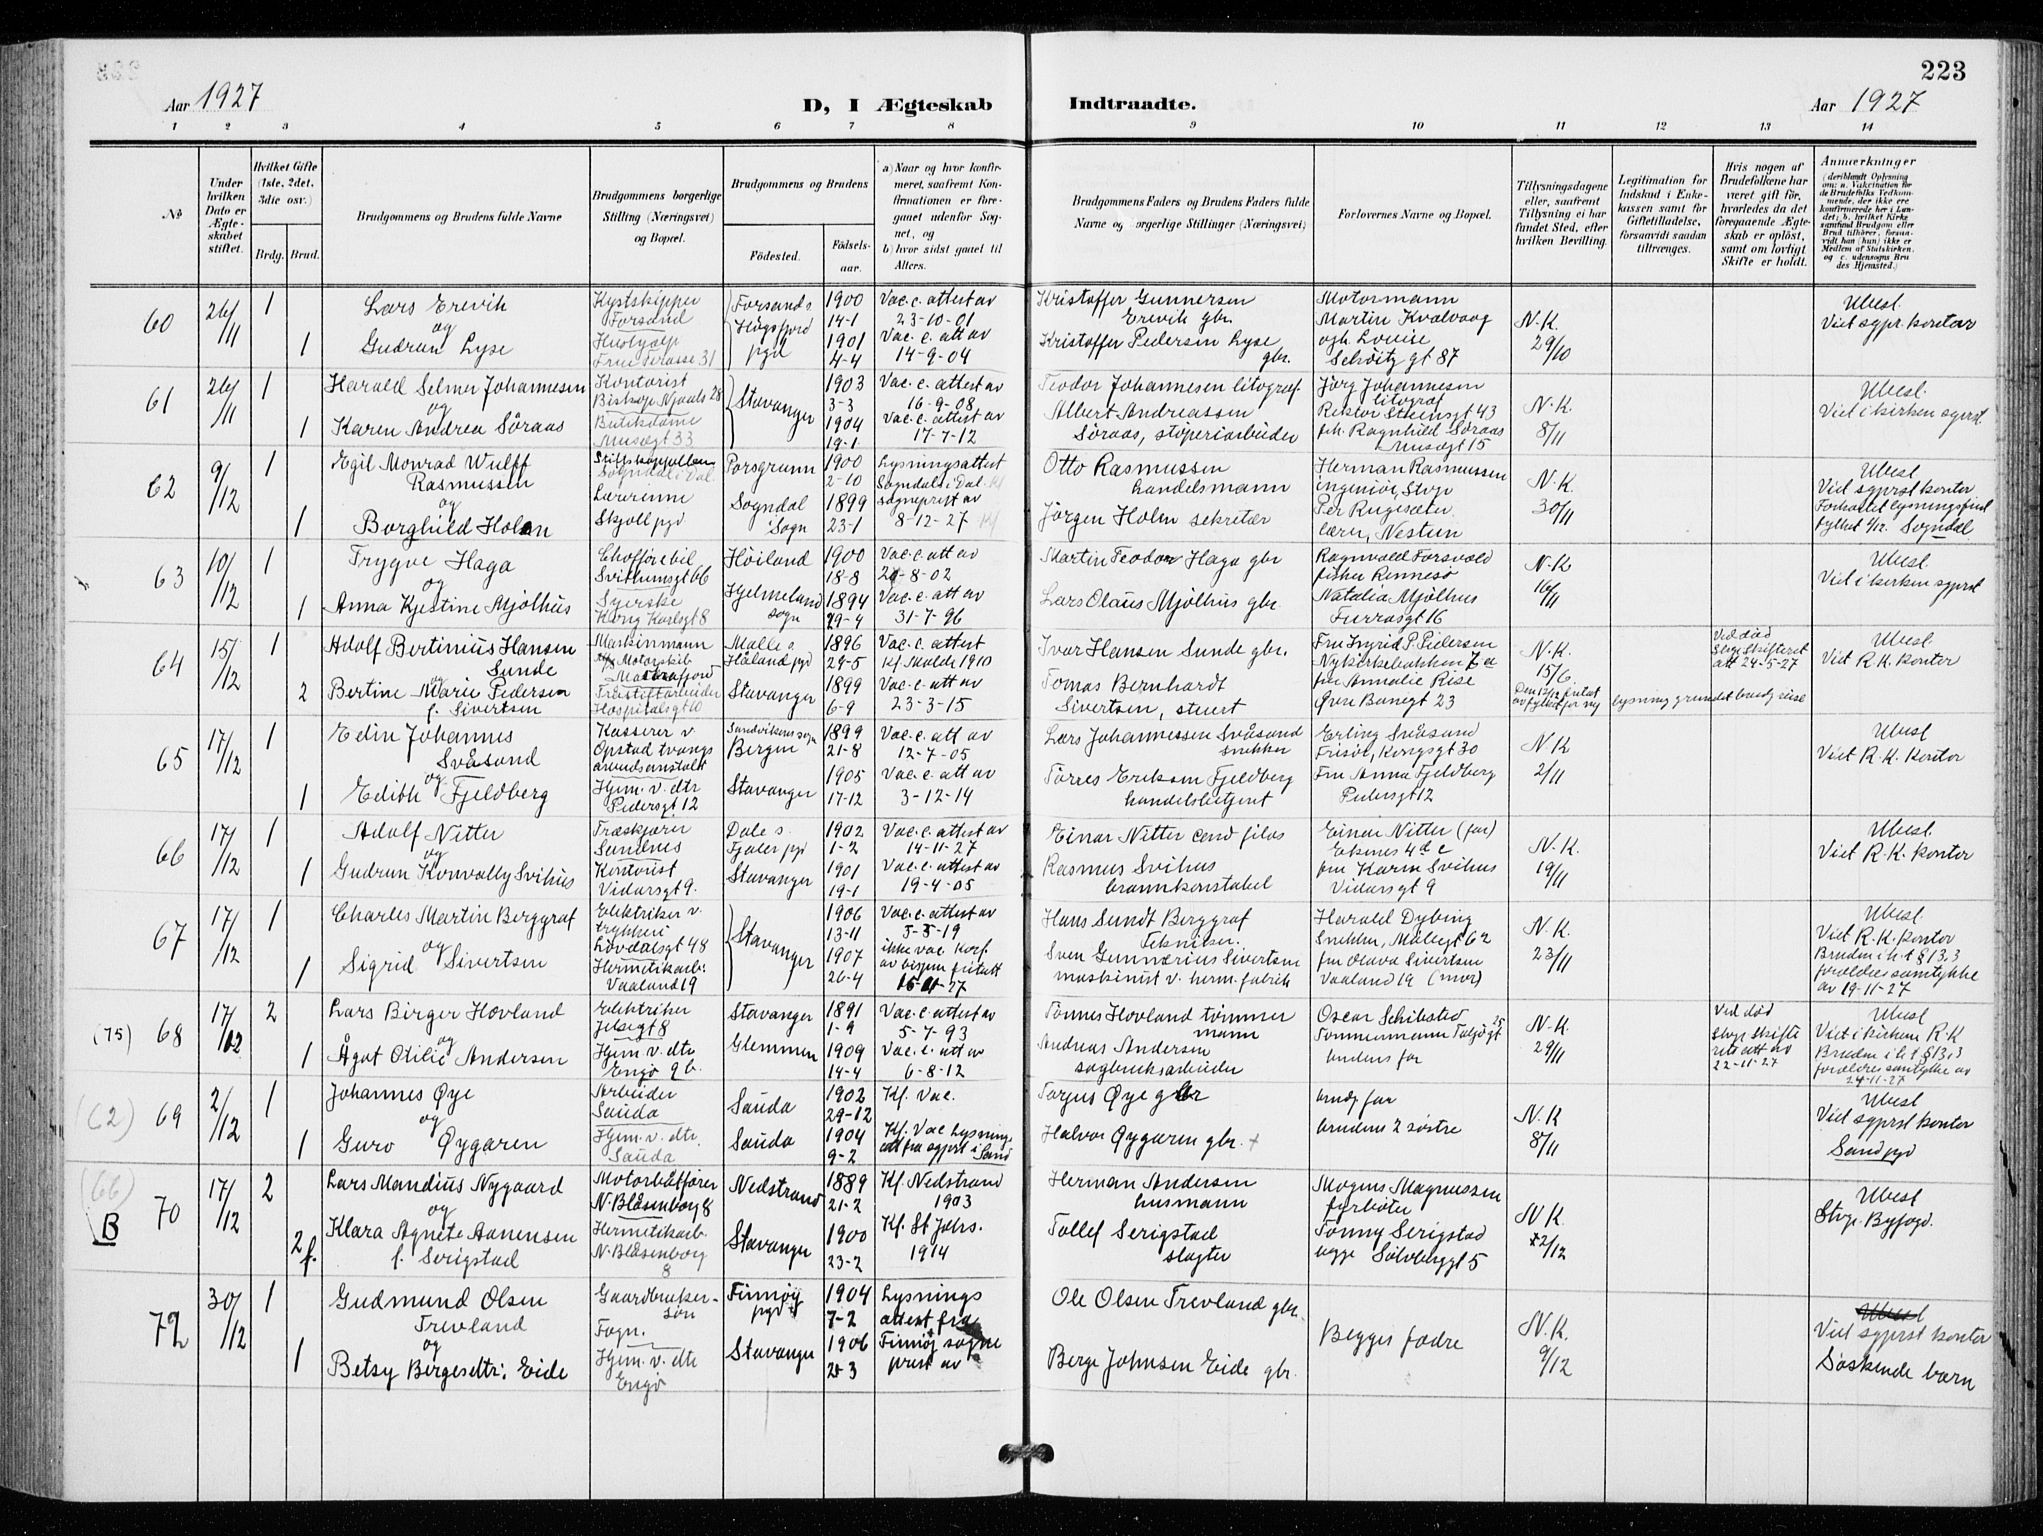 223
Aar 1927
D, I Ægteskab Indtraadte.
Aar 1927
1 2 3 4 5 6 7 8 9 10 11 12 13 14
№
Under hvilken Dato er Ægteskabet stiftet.
Hvilket Gifte (1ste, 2det, 3die osv.)
Brdg. Brud.
Brudgommens og Brudens fulde Navne
Brudgommens borgerlige Stilling (Næringsvei) og Bopæl.
Brudgommens og Brudens
Fødested.
Fødselsaar.
a) Naar og hvor konfirmeret, saafremt Konfirmationen er foregaaet udenfor Sognet, og
b) hvor sidst gaaet til Alters.
Brudgommens Faders og Brudens Faders fulde Navne og borgerlige Stillinger (Næringsvei)
Forlovernes Navne og Bopæl.
Tillysningsdagene eller, saafremt Tillysning ei har fundet Sted, efter hvilken Bevilling.
Legitimation for Indskud i Enkekassen samt for Giftetilladelse, forsaavidt saadan tiltrænges.
Hvis nogen af Brudefolkene har været gift før, hvorledes da det foregaaende Ægteskab er opløst, samt om lovligt Skifte er holdt.
Anmærkninger
(deriblandt Oplysning om: a. Vakcination for de Brudefolks Vedkommende, der ikke ere konfirmerede her i Landet; b. hvilket Kirkesamfund Brudgom eller Brud tilhører, forsaavidt han (hun) ikke er Medlem af Statskirken, og c. udensogns Brudes Hjemsted.)
60 26/11 1 Lars Erevik Kystskipper Forsand Forsands 1900 14-1 Vac. c. attest av 23-10-01 Kristoffer Gunnersen Erevik gbr. Motormann Martin Kvalvaag N.K. 29/10 Ubesl. Viet sgpr. kontor
og
1 Gudrun Lyse Høgsfjord pgd 1901 4-4 Vac. c. att av 14-9-04 Kristoffer Pedersen Lyse gbr. Louise gt 87
61 26/11 1 Harald Selmer Johannesen Kontorist Biskop Njaals 28 Stavanger 1903 3-3 Vac. c. attest av 16-9-08 Teodor Johannesen litograf Jørg Johannesen litograf Rektor Steensgt 43 N.K. 8/11 Ubesl. Viet i kirken sgprst
og
1 Karen Andrea Søraas Butikdame Musægt 33 1904 19-1 Vac. c. attest av 17-7-12 Albert Andreassen Søraas, støperiarbeider frk. Ragnhild Søraas Musægt 15
62 9/12 1 Egil Monrad Wulff Rasmussen Porsgrunn 1900 2-10 Lysningsattest Sogndal i Dal. Otto Rasmussen handelsmann Herman Rasmussen ingeniør, Stvgr N.K. 30/11 Ubesl Viet sgprst kontor
og
1 Borghild Holm Lærerinne Skjold pgd Sogndal i Sogn 1899 23-1 sogneprest av 8-12-27 Jørgen Holm sekretær Per Rugesæter lærer, Nestun Sogndal
63 10/12 1 Trygve Haga Svithunsgt 66 Høiland 1900 18-8 Vac. c. att av 21-8-02 Martin Teodor Haga gbr Ragnvald Forsvold fisker Rennesø N.K 16/11 Ubesl Viet i kirken sgprst
og
1 Anna Kjestine Mjølhus Syerske Kong Karlsgt 8 Hjelmeland sogn 1894 29-4 Vac. c. att av 31-7-96 Lars Olaus Mjølhus gbr. Natalia Mjølhus Furrasgt 16
64 15/12 1 Adolf Bertinius Hansen Sunde Maskinmann Motorskib Håland pgd 1896 29-5 Vac. c. attest Kf. Molde 1910 Ivar Hansen Sunde gbr. Fru Ingrid P. Pedersen Nykirkebakken 7 a N.K. 15/6 Ved død Stvgr Skifteret att 24-5-27 Ubesl Viet R.K. kontor
og
2 Bertine Marie Pedersen f. Sivertsen Hospitalsgt 10 Stavanger 1899 6-9 Vac. c. att av 23-3-15 Tomas Bernhardt Sivertsen, stuert fru Amalie Rise Øvre Banegt 23 Den 12/12 fritat av fylket for ny lysning grundet brudg reise
65 17/12 1 Edin Johannes Svåsand Kasserer v Opstad tvangsarbeidsanstalt Sandvikens sogn Bergen 1899 21-8 Vac. c. att av 12-7-05 Lars Johannessen Svåsand snekker Erling Svåsand Frisør, Kongsgt 30 N.K 2/11 Ubesl Viet R.K. kontor
og
1 Edith Fjeldberg Hjem. v. dtr Pedersgt 12 Stavanger 1905 17-12 Vac. c. att av 3-12-14 Torres Eriksen Fjeldberg handelsbetjent Fru Anna Fjeldberg Pedersgt 12
66 17/12 1 Adolf Nitter Træskjærer Sandnes Dale s. Fjaler pgd 1902 1-2 Vac. c. attest av 14-11-27 Einar Nitter cand filos Einar Nitter (far) N.K. 19/11 Ubesl Viet R.K. kontor
og
1 Gudrun Konvally Svihus Kontorist Vidarsgt 9. Stavanger 1901 19-1 Vac. c. attest av 19-4-05 Rasmus Svihus brannkonstabel fru Karin Svihus Vidarsgt 9
67 17/12 1 Charles Martin Berggraf Elektriker v. trykkeri Løvdalsgt 48 Stavanger 1906 13-11 Vac. c. attest av 5-5-19 Hans Sundt Berggraf Tekniker. Harald Dybing Snekker, Møllegt 62 N.K. 23/11 Ubesl. Viet R.K. kontor
og
1 Sigrid Sivertsen Hermetikarb. Vaaland 19 1907 26-4 ikke vac korf. av bispen fritatt 16-11-27 Sven Gunnerius Sivertsen maskinist v. herm. fabrik fru Olava Sivertsen Vaaland 19 (mor) Bruden i h.t § 13,3 foreldres samtykke av 19-11-27
(75) 68 17/12 2 Lars Birger Hovland Elektriker Jelsegt 8 Stavanger 1891 1-9 Vac. c. attest av 5-7-93 Tønnes Hovland tømmermann Oscar Schibsted Tømmermann N.K. 29/11 Ved død Stvgr Skifterets att av 22-11-27 Ubesl Viet i kirken R.K
og
1 Ågot Otilie Andersen Hjem. v. dtr Engø 9 b. Glemmen 1909 14-4 Vac. c. att av 6-8-12 Andreas Andersen sagbruksarbeider brudens far Bruden i h t § 13,3 foreldres samtykke av 24-11-27
(62) 69 2/12 1 Johannes Øye Arbeider Sauda Sauda 1902 29-12 Kf. Vac. Torjus Øye gbr brudg far N.K 8/11 Ubesl Viet sgprst kontor
og
1 Guro Øygaren Hjem. v. dtr. Sauda Sauda 1904 9-2 Kf. Vac Lysningsatt fra sgprst i Sand Halvor Øygaren gbr. + brudens 2 søstre Sand pgd
(66) B 70 17/12 2 Lars Mandius Nygaard Motorbåtfører N. Blåsenborg 8 Nedstrand 1889 21-2 Kf. Nedstrand 1903 Herman Andersen husmann Mogens Magnussen fyrbøter N.K. 2/12 Ubesl Stvgr. Byfogd.
og
2 f. Klara Agnete Aanensen f. Serigstad Hermetikarb. N. Blåsenborg 8 Stavanger 1900 23-2 Kf. St Johs. 1914 Tollef Serigstad slagter Tønny Serigstad Sølvberggt 5
72 30/12 1 Gudmund Olsen Trevland Gaardbrukersøn Fogn. Finnøy pgd 1904 7-2 Lysnings attest fra Ole Olsen Trevland gbr. Begges fædre N.K. 9/12 Ubesl Viet sgprst kontor
og
1 Betsy Bergesdtr: Eide Hjem. v. dtr Engø Stavanger 1906 25-3 Finnøy sogneprest av Berge Johnsen Eide gbr. Søskende barn